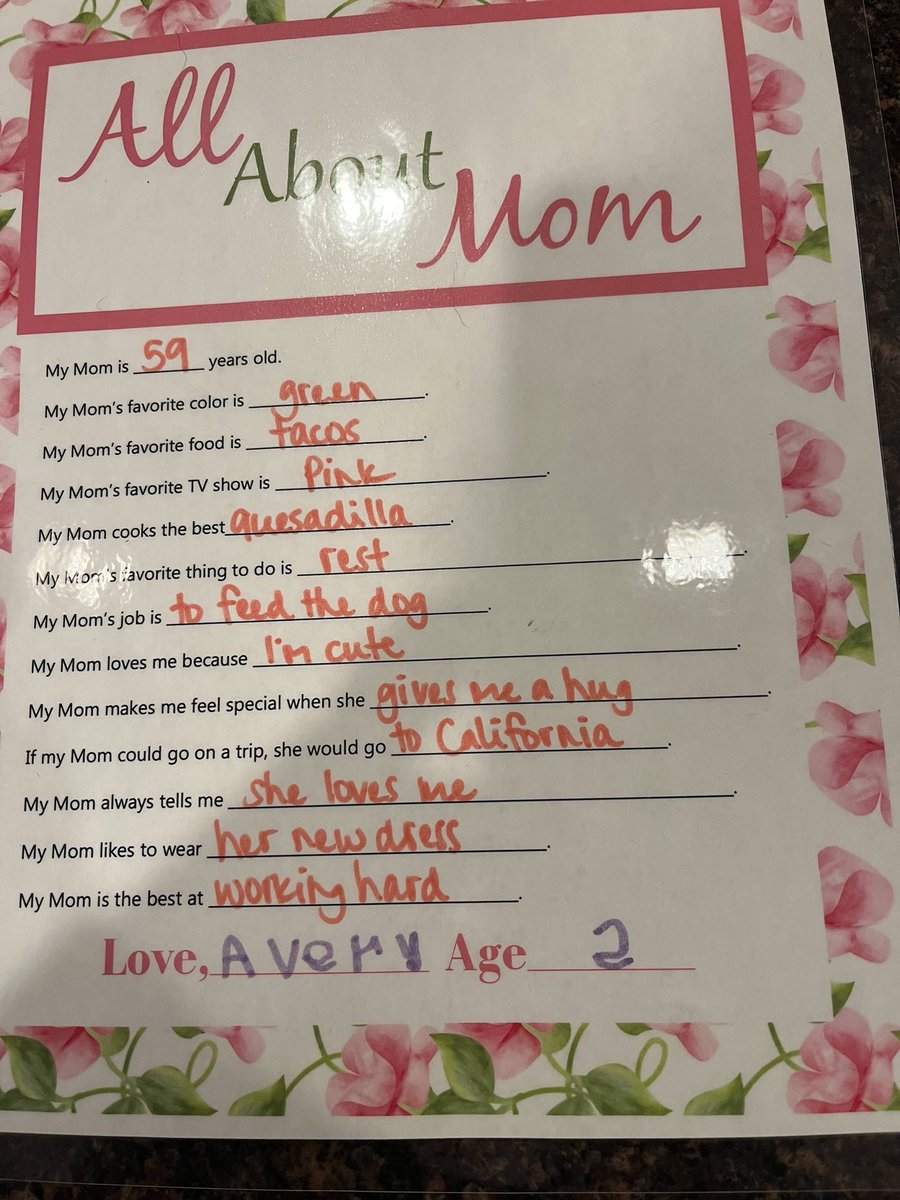 All
About
Mom
My Mom is 59 years old.
My Mom's favorite color is green.
My Mom's favorite food is tacos.
My Mom's favorite TV show is Pink.
My Mom cooks the best quesadilla.
My Mom's favorite thing to do is rest.
My Mom's job is to feed the dog.
My Mom loves me because I'm cute.
My Mom makes me feel special when she gives me a hug.
If my Mom could go on a trip, she would go to California.
My Mom always tells me she loves me.
My Mom likes to wear her new dress.
My Mom is the best at working hard.
Love, Avery Age 2